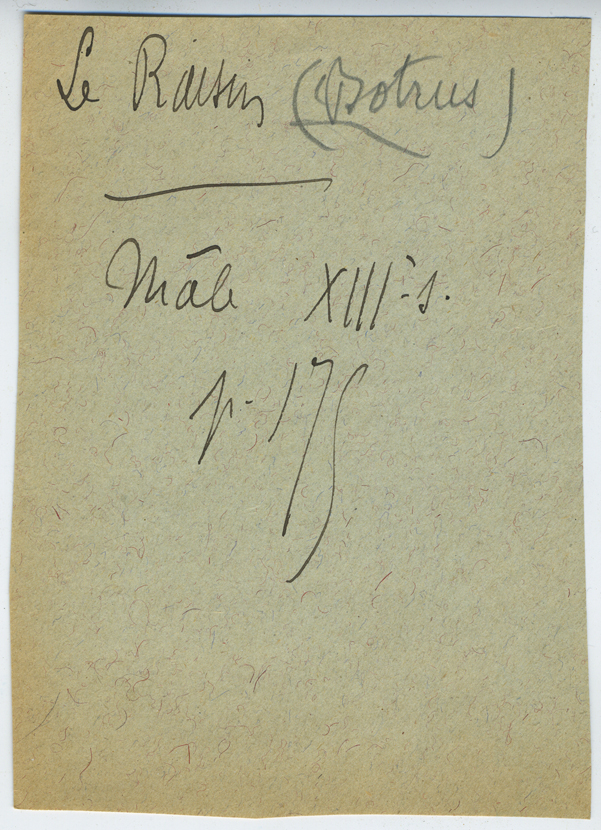 Le Raisin (Botrus)
Mâle XIIIe s.
p. 175